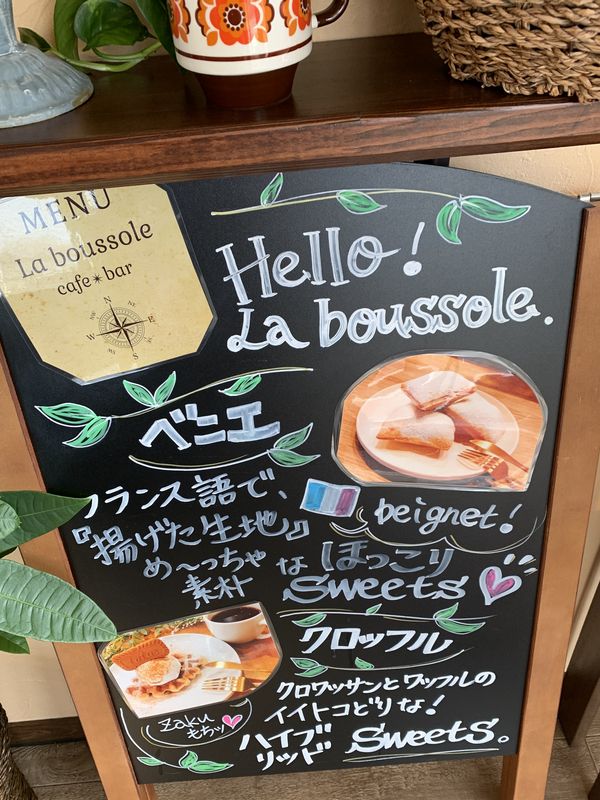 MENU
La boussole
cafe✴bar
N
NE
E
SE
S
SW
W
NW
Hello!
La boussole.
ベニエ
フランス語で、
『揚げた生地』
beignet!
め〜っちゃ
素朴
な ほっこり
Sweets
クロッフル
クロワッサンとワッフルの
イイトコどりな!
Zaku
もちッ
ハイブ
リッド
Sweets。